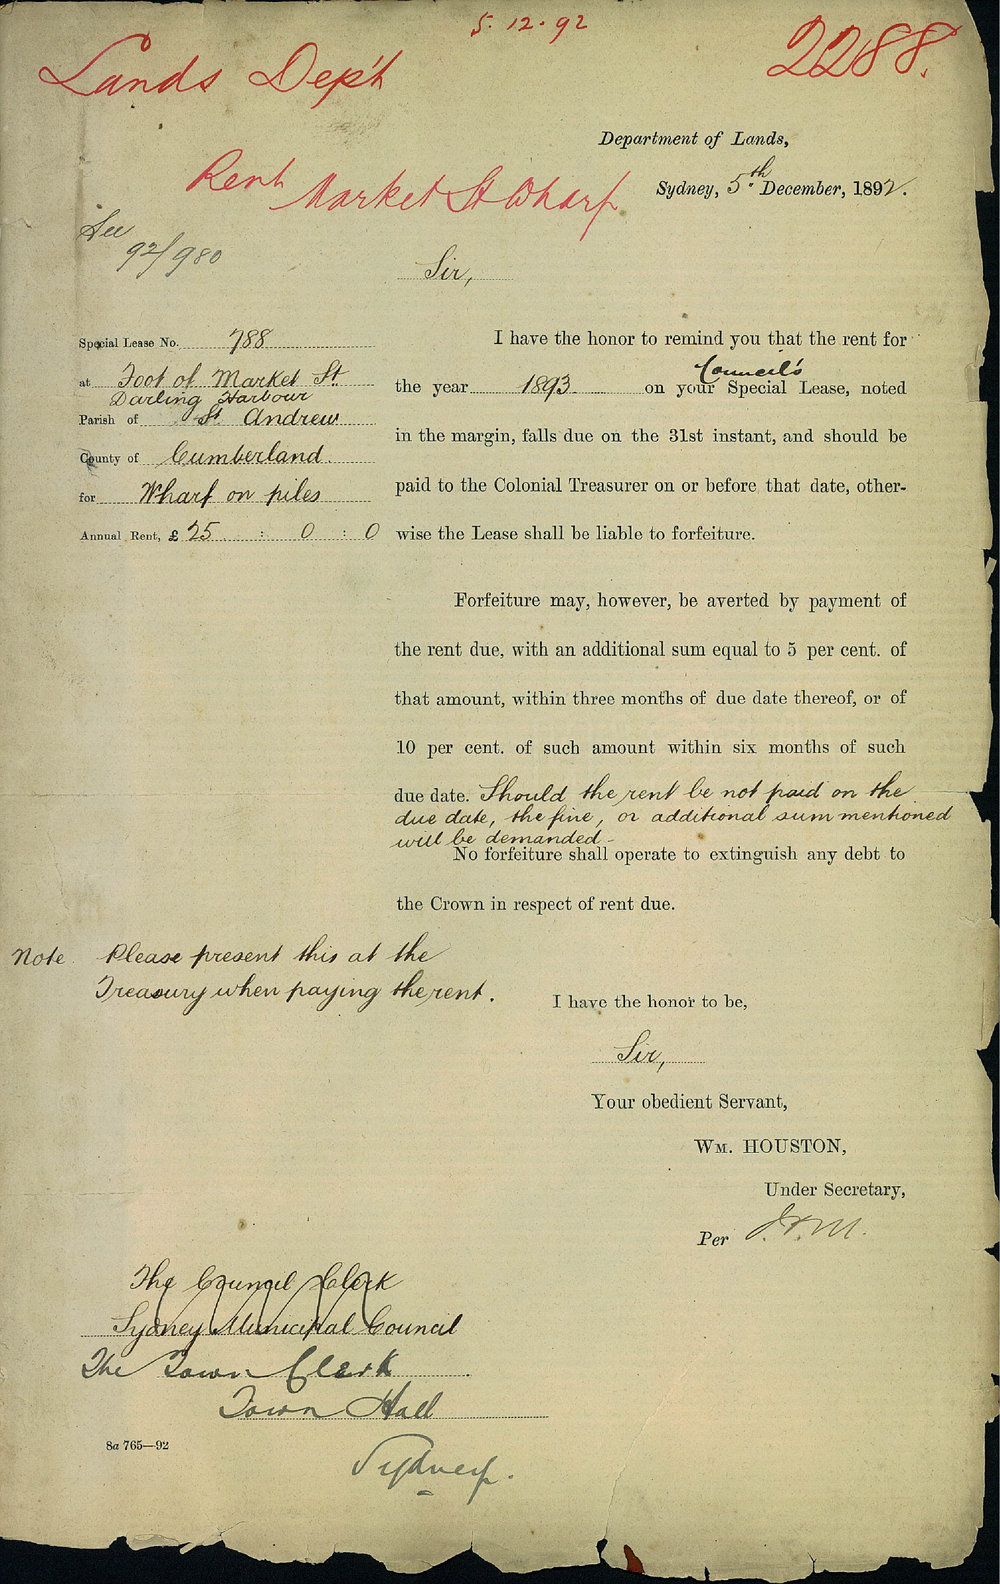 5.12.92
2288.
Lands Dep't
Department of Lands,
Rent Market St Wharf
Sydney, 5th December, 1892.
See
92/980
Sir,
Special Lease No. 788
at Foot of Market St.
Darling Harbour
Parish of St Andrew
County of Cumberland.
for Wharf on piles
Annual Rent, £25 : 0 : 0
I have the honor to remind you that the rent for
Council's
the year 1893 on your Special Lease, noted
in the margin, falls due on the 31st instant, and should be
paid to the Colonial Treasurer on or before that date, other-
wise the Lease shall be liable to forfeiture.
Forfeiture may, however, be averted by payment of
the rent due, with an additional sum equal to 5 per cent. of
that amount, within three months of due date thereof, or of
10 per cent. of such amount within six months of such
due date. Should the rent be not paid on the
due date, the fine, or additional sum mentioned
will be demanded -
No forfeiture shall operate to extinguish any debt to
the Crown in respect of rent due.
Note. Please present this at the
Treasury when paying the rent.
I have the honor to be,
Sir,
Your obedient Servant,
WM. HOUSTON,
Under Secretary,
Per
The Council Clerk
Sydney Municipal Council
The Town Clerk
Town Hall
8a 765—92
Sydney.